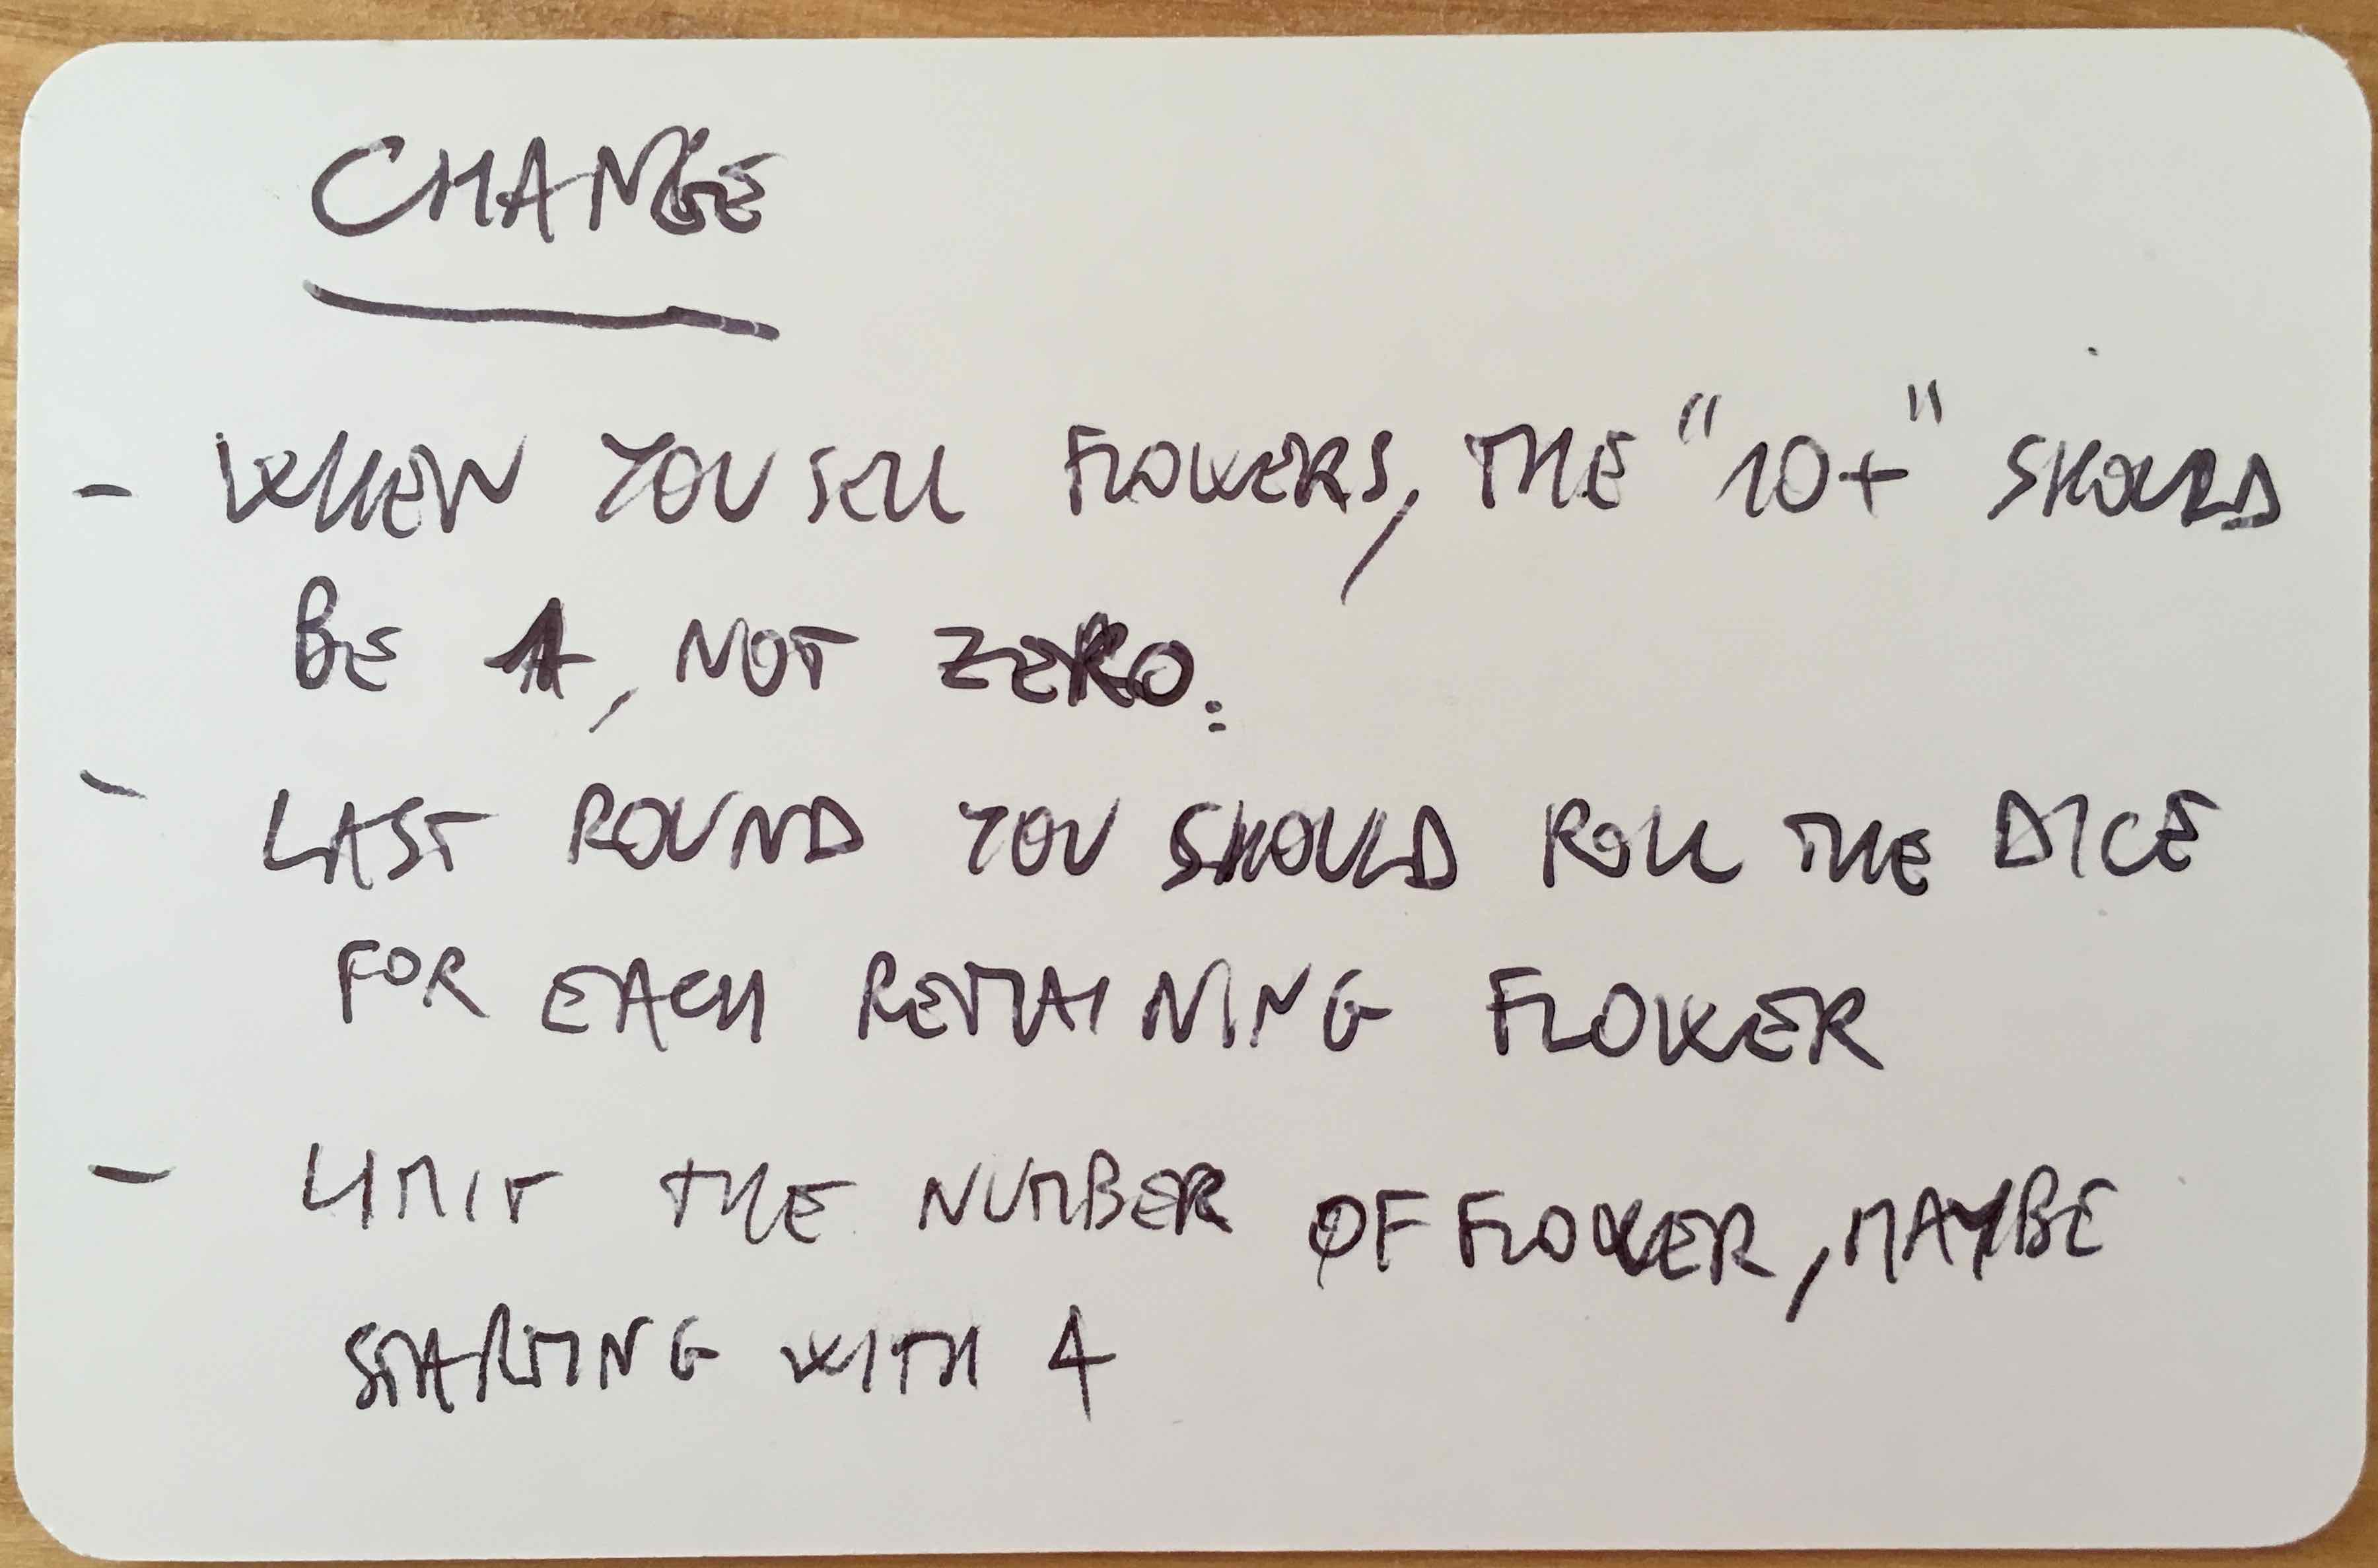 CHANGE
- WHEN YOU SELL FLOWERS, THE "10+" SHOULD
BE 1, NOT ZERO.
- LAST ROUND YOU SHOULD ROLL THE DICE
FOR EACH REMAINING FLOWER
- LIMIT THE NUMBER OF FLOWER, MAYBE
STARTING WITH 4